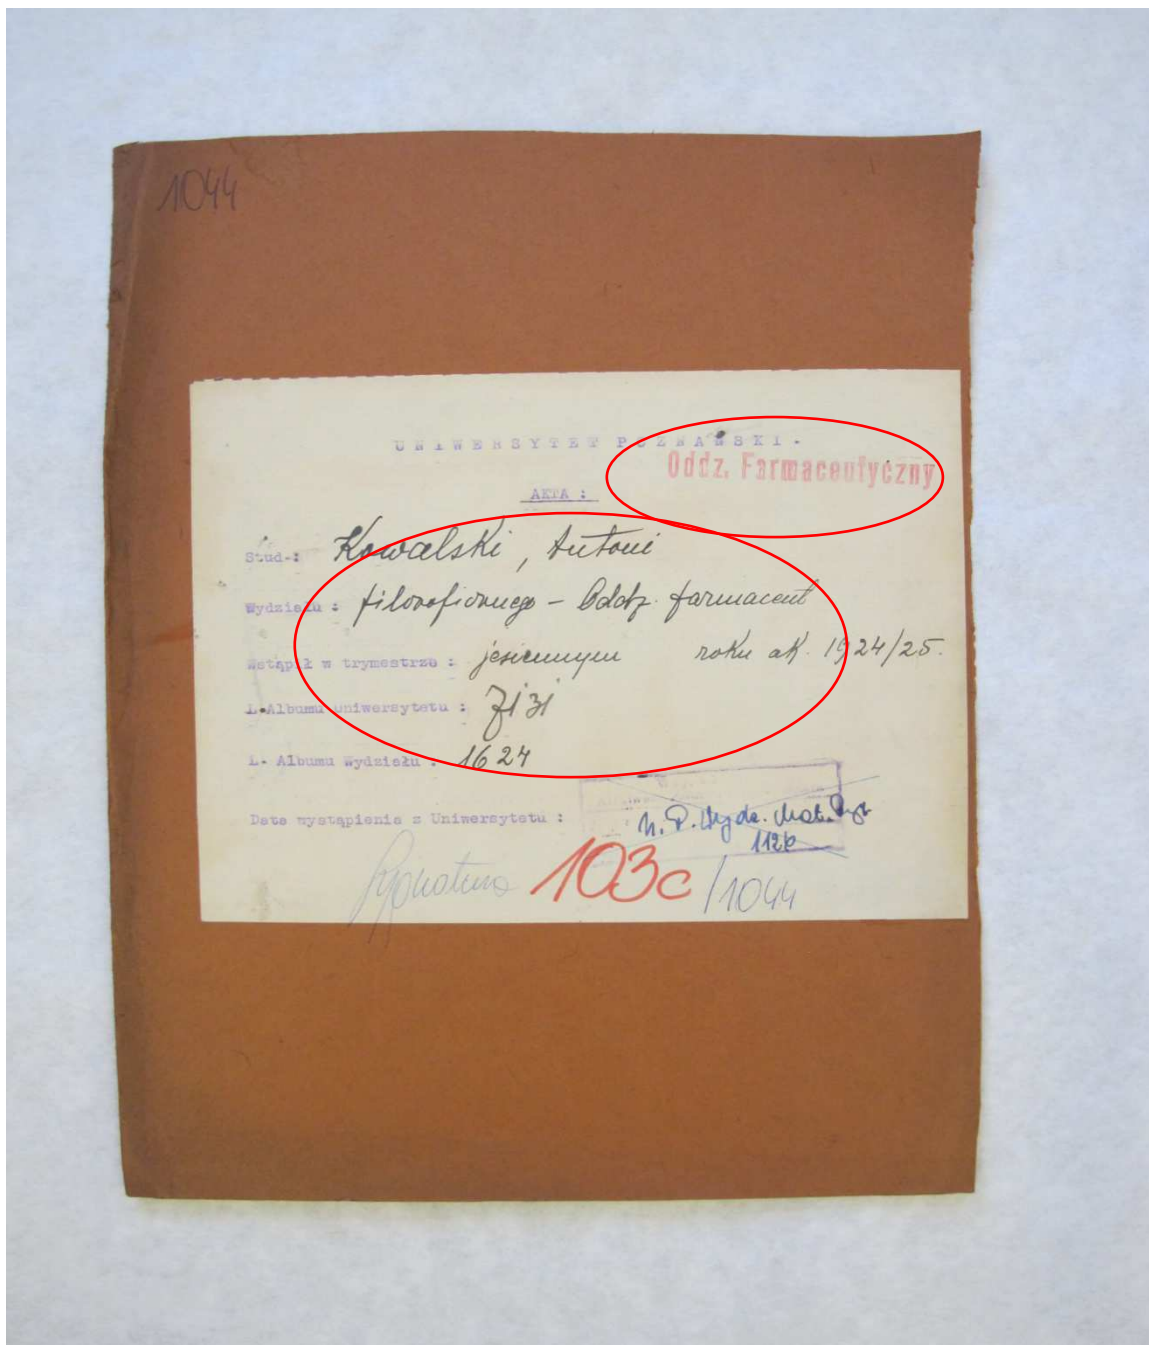 1044
UNIWERSYTET POZNAŃSKI.
Oddz. Farmaceutyczny
AKTA :
Stud.: Kowalski, Antoni
Wydziału : filozoficznego - Oddz. farmaceut
Wstąpił w trymestrze : jesiennym roku ak. 1924/25.
L. Albumu Uniwersytetu :
L. Albumu Wydziału : 1624
Data wystąpienia z Uniwersytetu :
112b
Sygnatura 103c/1044